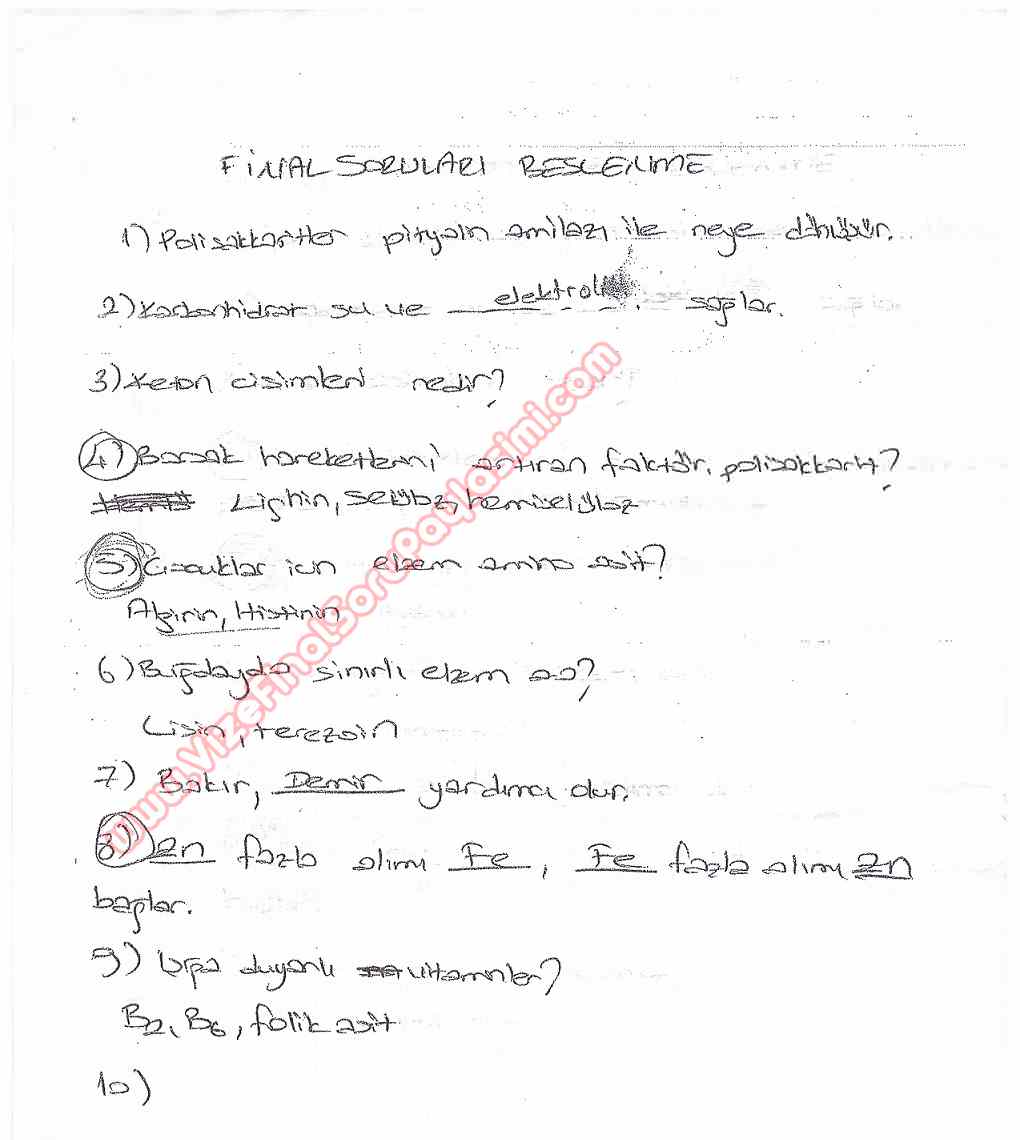 FİNAL SORULARI BESLENME
1) Polisakkaritler pityalin amilazı ile neye dönüşür.
2) Karbonhidrat su ve elektrolit sağlar.
3) Keton cisimleri nedir?
4) Barsak hareketlerini artıran faktör, polisakkarit?
Lignin, selüloz, hemiselüloz
5) Çocuklar icin elzem amino asit?
Arjinin, Histinin
6) Buğdayda sınırlı elzem aa?
Lisin, terezoin
7) Bakır, Demir yardımcı olur.
8) Zn fazla alımı Fe, Fe fazla alımı Zn
baplar.
9) Işığa duyarlı vitaminler?
B2, B6, folik asit
10)
www.VizeFinalSoruPaylasimi.com